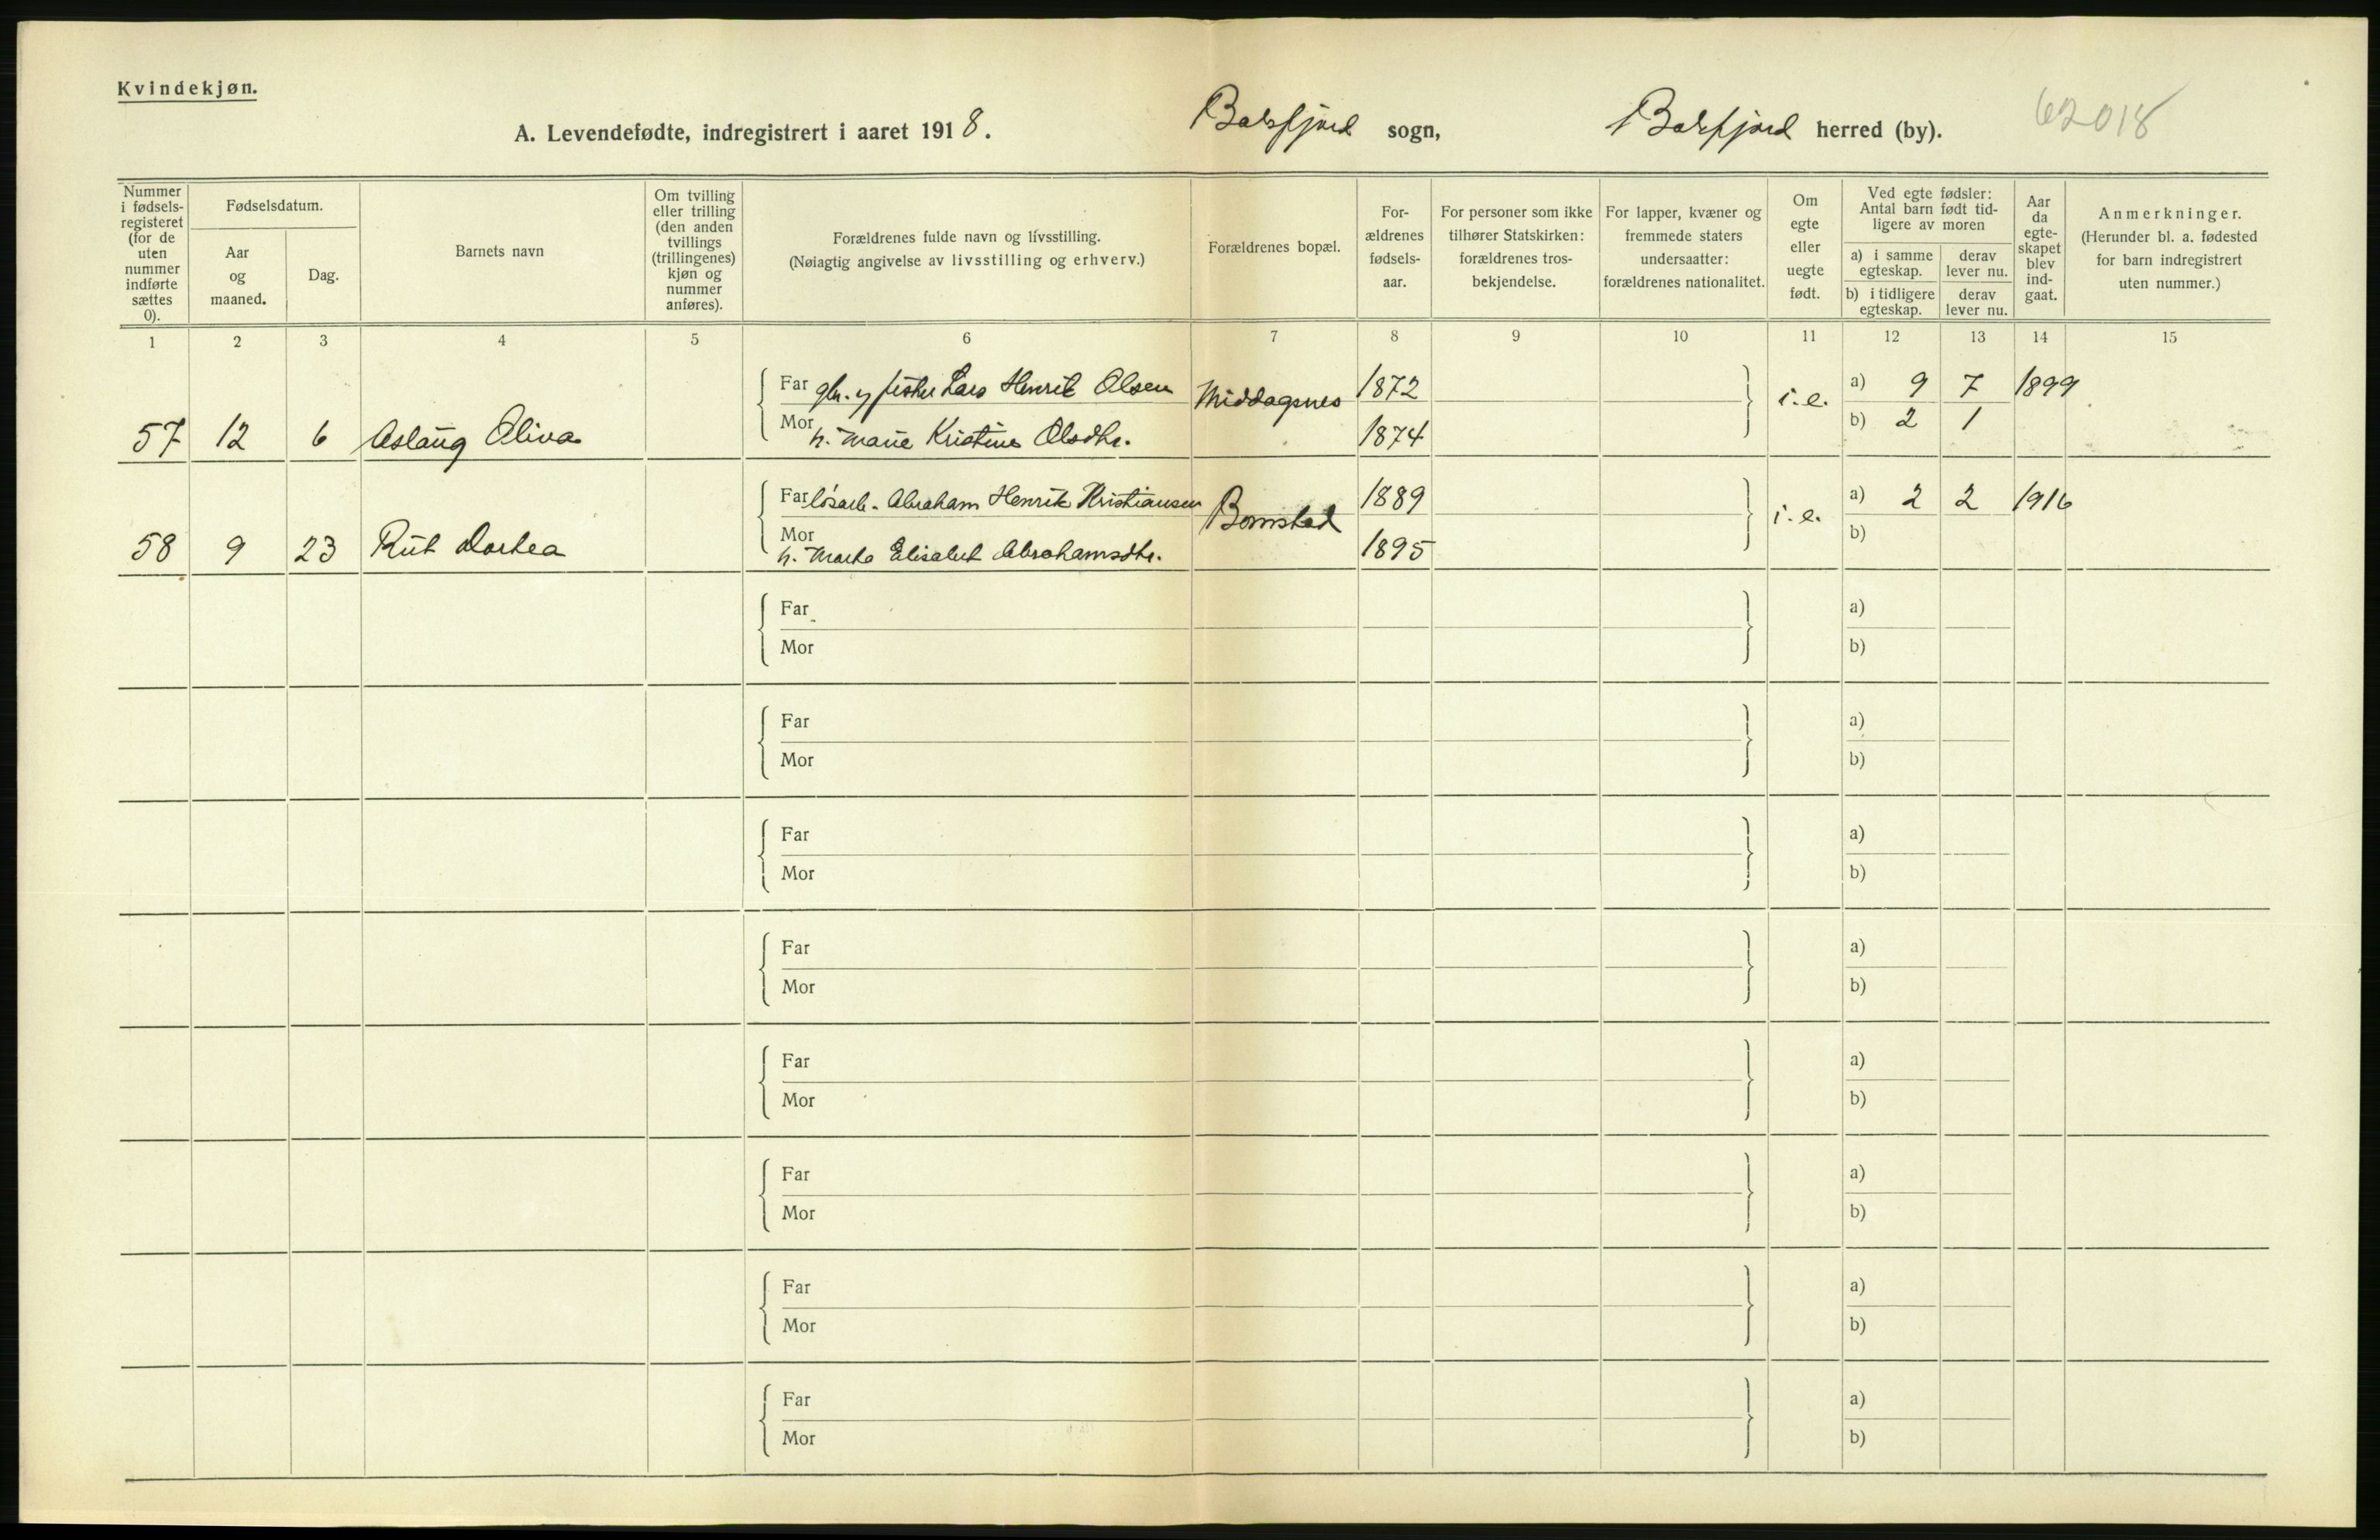 Kvindekjøn.
A. Levendefødte, indregistrert i aaret 1918. Balsfjord sogn, Balsfjord herred (by). 62018
Nummer i fødselsregisteret (for de uten nummer indførte sættes 0).
Fødselsdatum.
Aar og maaned.
Dag.
Barnets navn
Om tvilling eller trilling (den anden tvillings (trillingenes) kjøn og nummer anføres).
Forældrenes fulde navn og livsstilling.
(Nøiagtig angivelse av livsstilling og erhverv.)
Forældrenes bopæl.
Forældrenes fødselsaar.
For personer som ikke tilhører Statskirken: forældrenes trosbekjendelse.
For lapper, kvæner og fremmede staters undersaatter: forældrenes nationalitet.
Om egte eller uegte født.
Ved egte fødsler: Antal barn født tidligere av moren
a) i samme egteskap.
derav lever nu.
b) i tidligere egteskap.
derav lever nu.
Aar da egteskapet blev indgaat.
Anmerkninger.
(Herunder bl. a. fødested for barn indregistrert uten nummer.)
1 2 3 4 5 6 7 8 9 10 11 12 13 14 15
Far gbr. og fisker Lars Henrik Olsen Middagsnes 1872 i.e. a) 9 7 1899
57 12 6 Aslaug Oliva Mor h. Marie Kristine Olsdtr. 1874 b) 2 1
Far løsarb. Abraham Henrik Kristiansen Bomstad 1889 i.e. a) 2 2 1916
58 9 23 Rut Dortea Mor h. Marta Elisabet Abrahamsdtr. 1895 b)
Far a)
Mor b)
Far a)
Mor b)
Far a)
Mor b)
Far a)
Mor b)
Far a)
Mor b)
Far a)
Mor b)
Far a)
Mor b)
Far a)
Mor b)